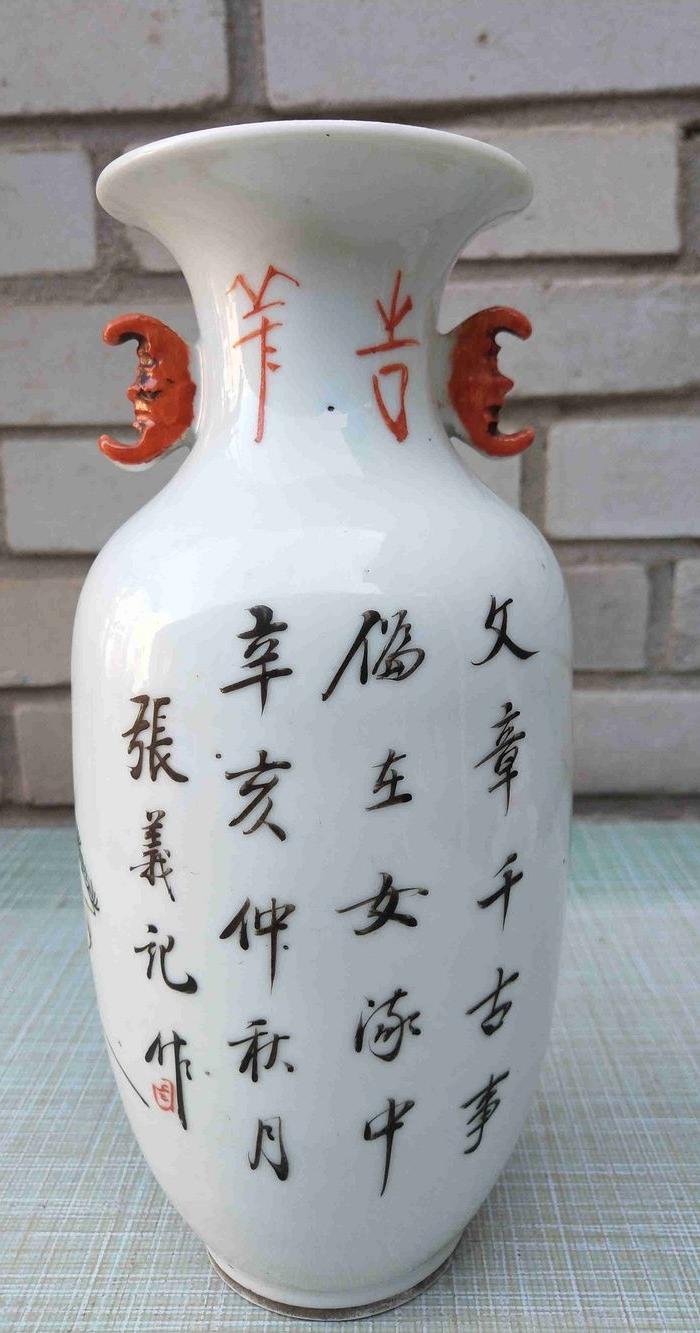 吉羊
文章千古事
偏在女中
辛亥仲秋月
張義記作